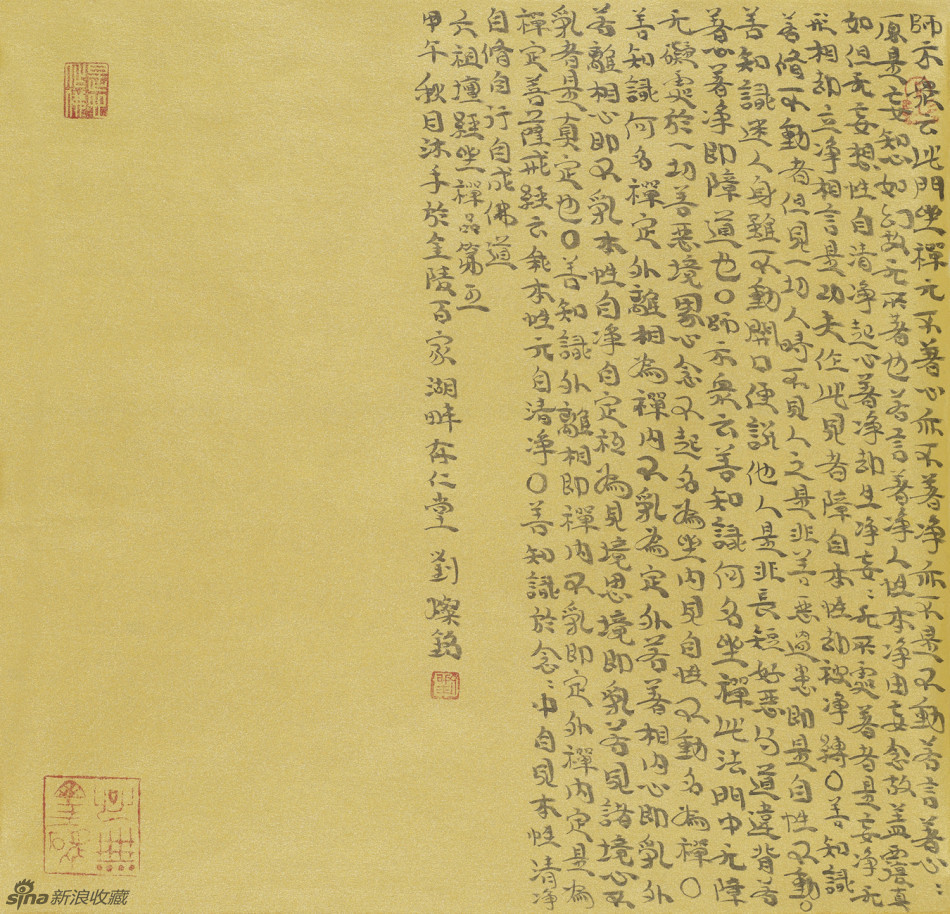 師示眾云此門坐禪元不著心亦不著淨亦不是不動若言著心:
原是妄知心如幻故无所著也若言著淨人性本淨由妄念故蓋覆真
如但无妄想性自清淨起心著淨却生淨妄:无所處著者是妄淨无
形相却立淨相言是功夫作此見者障自本性却被淨縛〇善知識
若修不動者但見一切人時不見人之是非善惡過患即是自性不動〇
善知識迷人身雖不動開口便說他人是非長短好惡与道違背若
著心著淨即障道也〇師示眾云善知識何名坐禪此法門中元障
无礙處於一切善惡境界心念不起名為坐内見自性不動名為禪〇
善知識何名禪定外離相為禪内不乱為定外若著相内心即乱外
若離相心即不乱本性自淨自定秪為見境思境即乱若見諸境心不
乱者是真定也〇善知識外離相即禪内不乱即定外禪内定是為
禪定菩薩戒經云我本性元自清淨〇善知識於念:中自見本性清淨
自修自行自成佛道
六祖壇經坐禪品第五
甲午秋月沐手於金陵百家湖畔存仁堂 劉燦銘
劉
sina新浪收藏